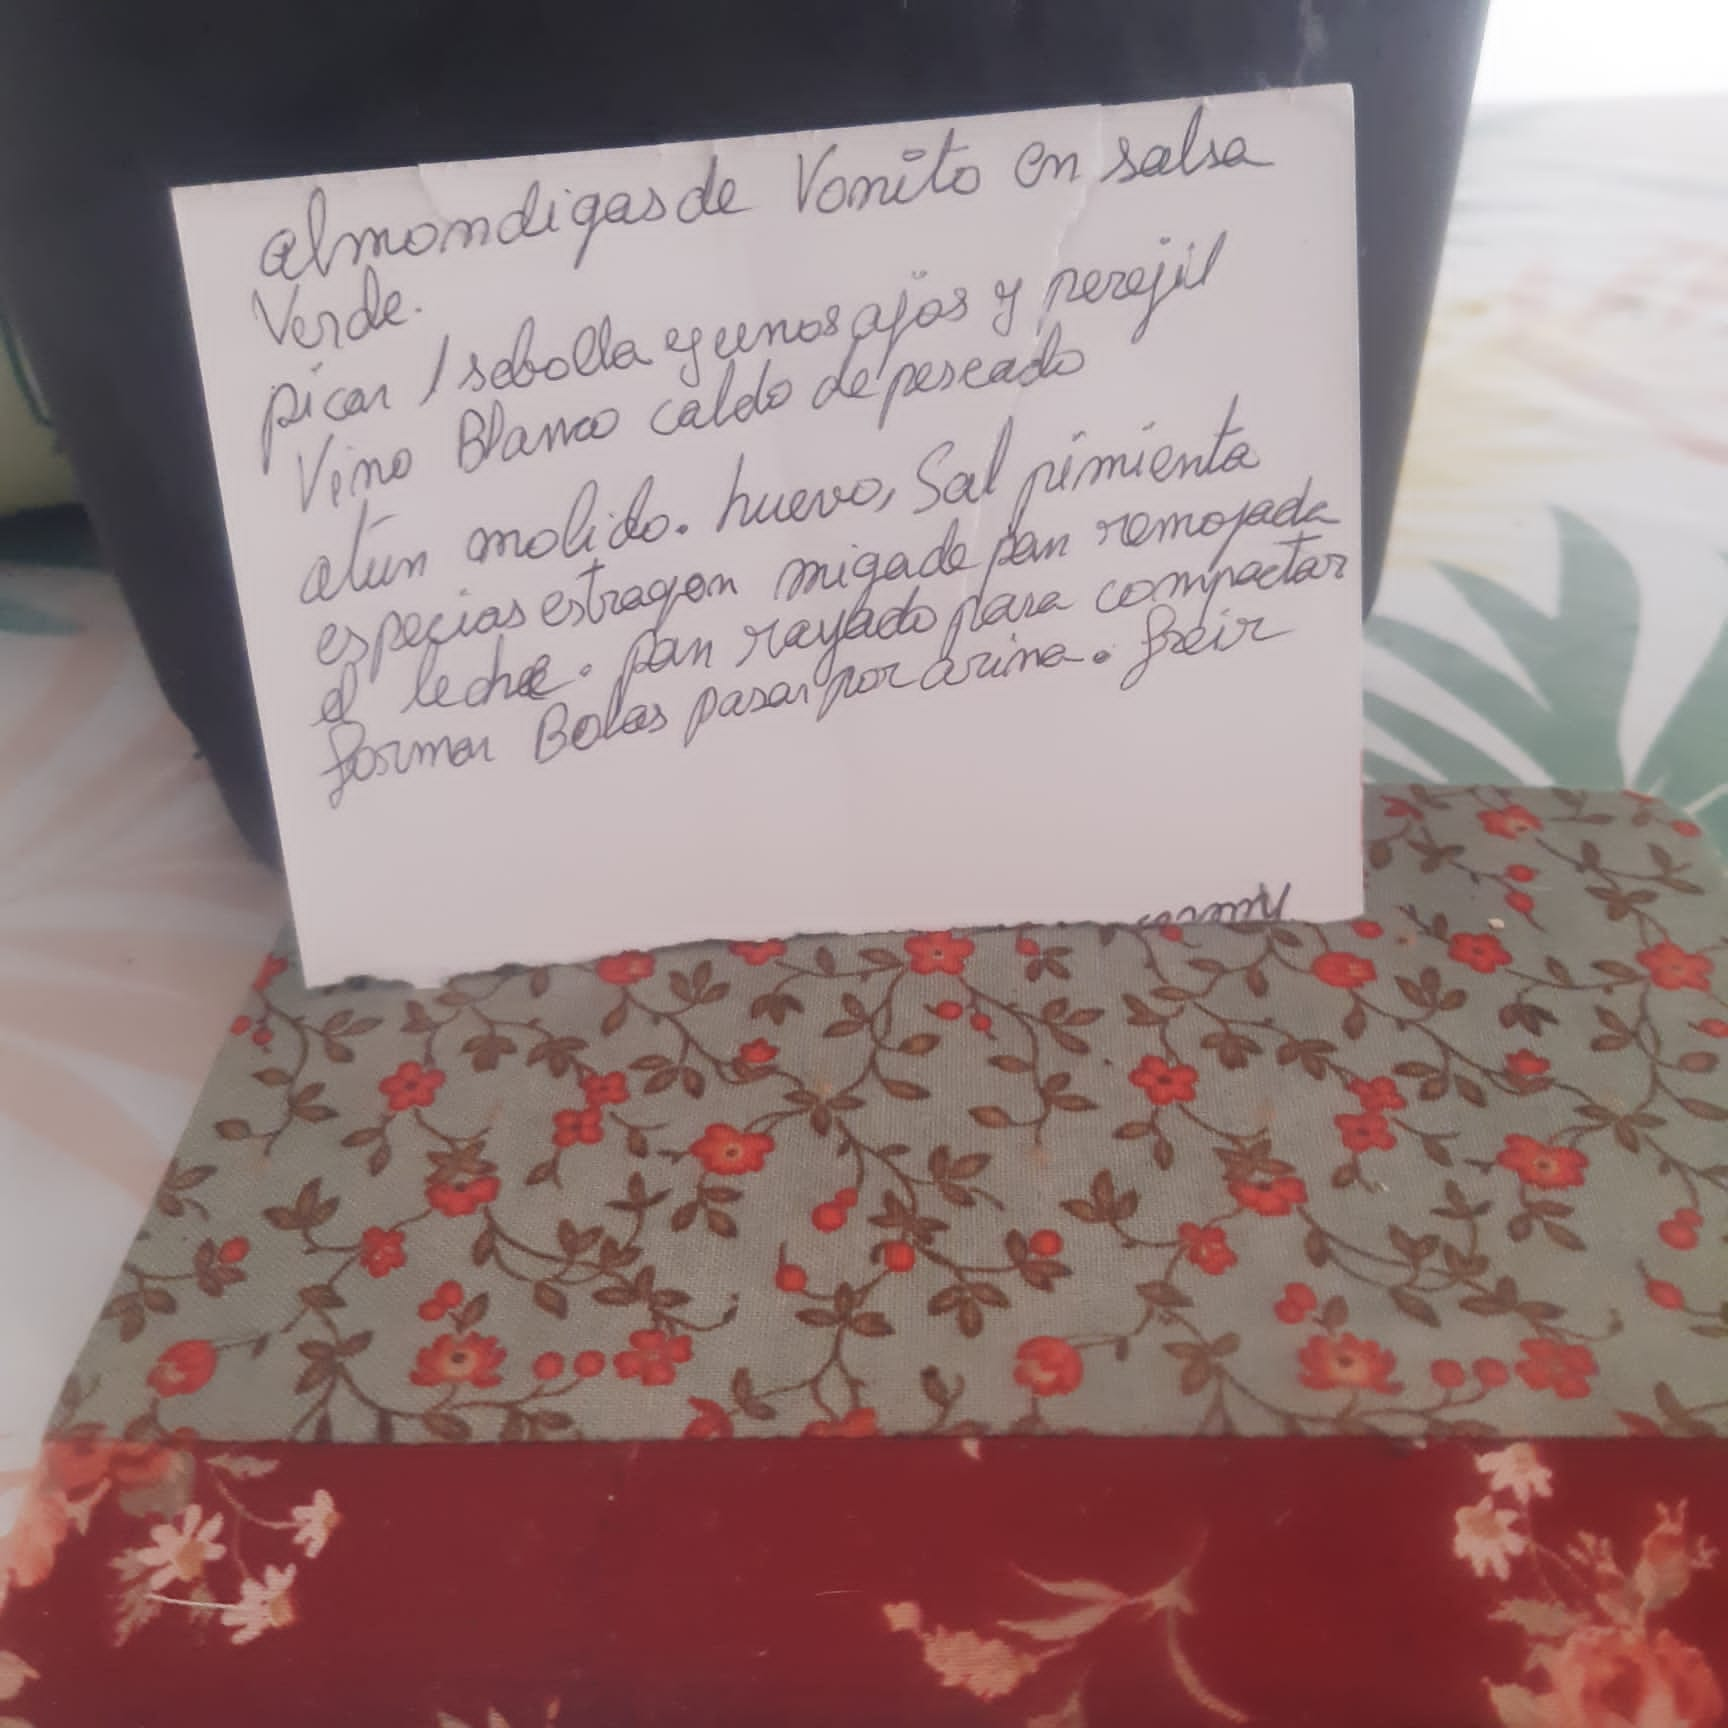 almondigas de Vonito en salsa
Verde.
picar 1 sebolla y unos ajos y perejil
Vino Blanco caldo de pescado
atún molido. huevo, Sal pimienta
especias estragon miga de pan remojada
leche. pan rayado para compactar
formar Bolas pasar por arina. freir